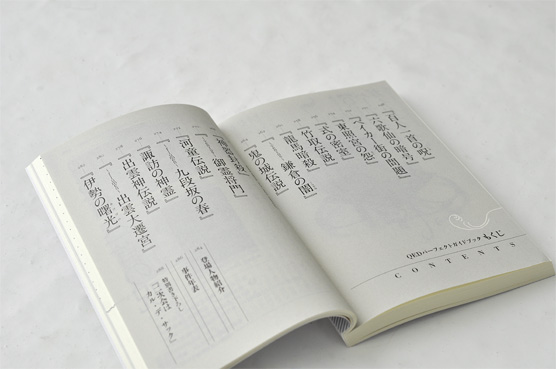 QEDパーフェクトガイドブック もくじ
CONTENTS
『百人一首の呪』
『六歌仙の暗号』
『ベイカー街の問題』
『東照宮の怨』
『式の密室』
『竹取伝説』
『龍馬暗殺』
『鎌倉の闇』
『鬼の城伝説』
御霊将門』
『河童伝説』
九段坂の春』
『諏訪の神霊』
『出雲神伝説』
出雲大遷宮』
『伊勢の曙光』
登場人物紹介
事件年表
特別書き下ろし
カル・デ・サック』